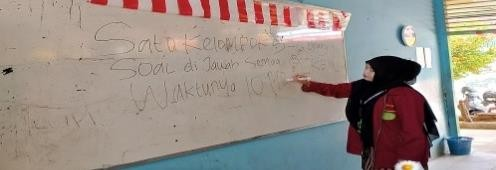 Satu Kelompok 5
Soal di Jawab Semua
Waktunya 10